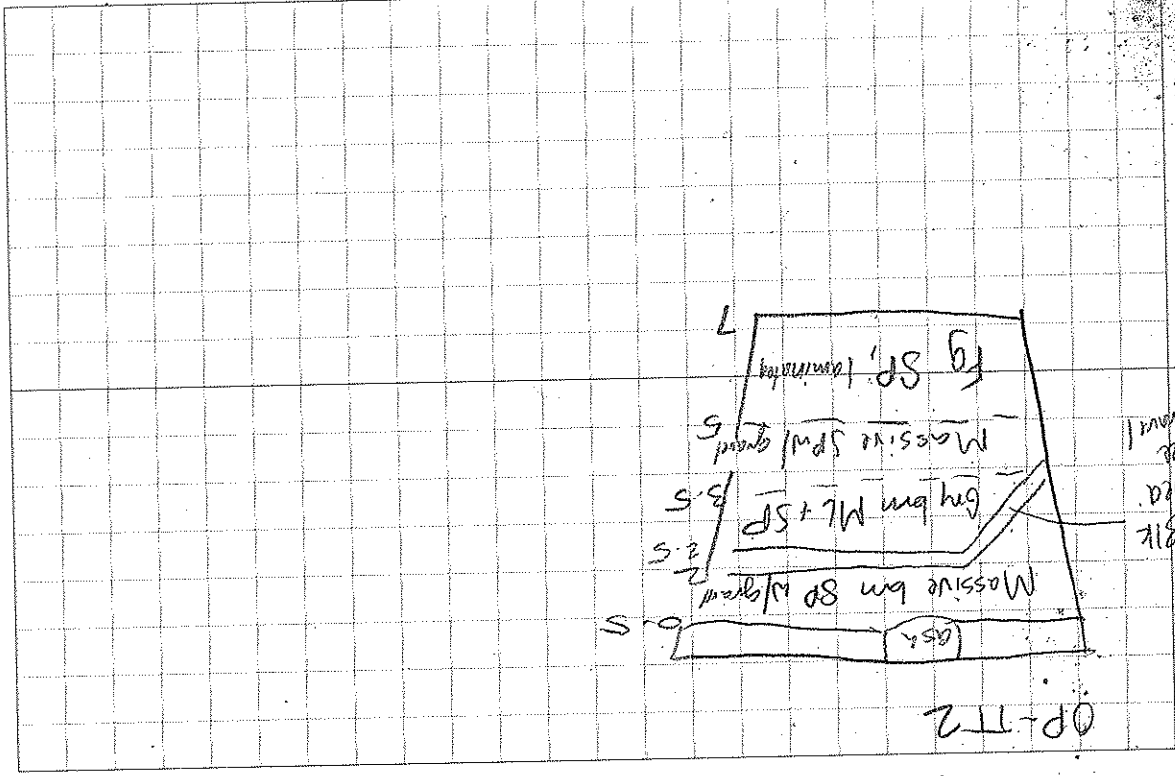 OP-TT2
ash
0-5
Massive brn SP w/gravel
2
2.5
Gry brn ML + SP
3-5
Massive SP w/ gravel
5
Fg SP, laminated
7
Blk